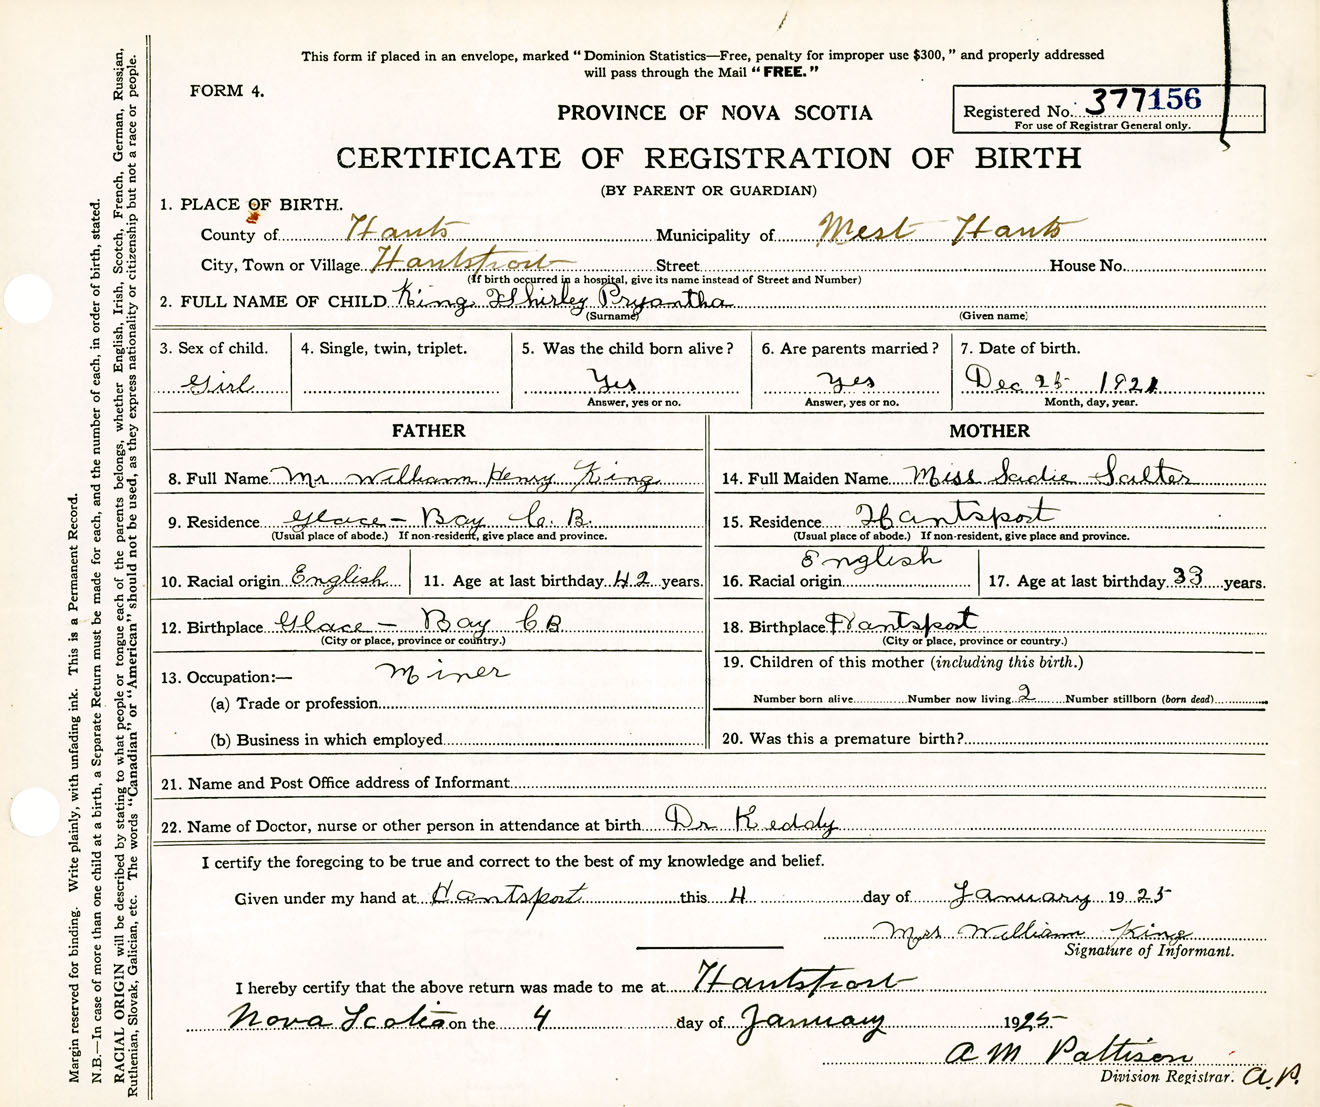 This form if placed in an envelope, marked "Dominion Statistics—Free, penalty for improper use $300," and properly addressed
will pass through the Mail "FREE."
FORM 4.
PROVINCE OF NOVA SCOTIA
Registered No. 377156
For use of Registrar General only.
CERTIFICATE OF REGISTRATION OF BIRTH
(BY PARENT OR GUARDIAN)
1. PLACE OF BIRTH.
County of Hants Municipality of West Hants
City, Town or Village Hantsport Street House No.
(If birth occurred in a hospital, give its name instead of Street and Number)
2. FULL NAME OF CHILD King Shirley Pryantha
(Surname) (Given name)
3. Sex of child. 4. Single, twin, triplet. 5. Was the child born alive? 6. Are parents married? 7. Date of birth.
Girl Yes Yes Dec 25 1921
Answer, yes or no. Answer, yes or no. Month, day, year.
FATHER MOTHER
8. Full Name Mr William Henry King 14. Full Maiden Name Miss Sadie Salter
9. Residence Glace - Bay C. B. 15. Residence Hantsport
(Usual place of abode.) If non-resident, give place and province. (Usual place of abode.) If non-resident, give place and province.
10. Racial origin English 11. Age at last birthday 42 years. 16. Racial origin English 17. Age at last birthday 33 years.
12. Birthplace Glace - Bay CB 18. Birthplace Hantsport
(City or place, province or country.) (City or place, province or country.)
13. Occupation:— Miner 19. Children of this mother (including this birth.)
(a) Trade or profession Number born alive Number now living 2 Number stillborn (born dead)
(b) Business in which employed 20. Was this a premature birth?
21. Name and Post Office address of Informant
22. Name of Doctor, nurse or other person in attendance at birth Dr Keddy
I certify the foregoing to be true and correct to the best of my knowledge and belief.
Given under my hand at Hantsport this 4 day of January 1925
Mrs William King
Signature of Informant.
I hereby certify that the above return was made to me at Hantsport
Nova Scotia on the 4 day of January 1925
A M Pattison
Division Registrar. A.P.
Margin reserved for binding. Write plainly, with unfading ink. This is a Permanent Record.
N.B.—In case of more than one child at a birth, a Separate Return must be made for each, and the number of each, in order of birth, stated.
RACIAL ORIGIN will be described by stating to what people or tongue each of the parents belongs, whether English, Irish, Scotch, French, German, Russian,
Ruthenian, Slovak, Galician, etc. The words "Canadian" or "American" should not be used, as they express nationality or citizenship but not a race or people.